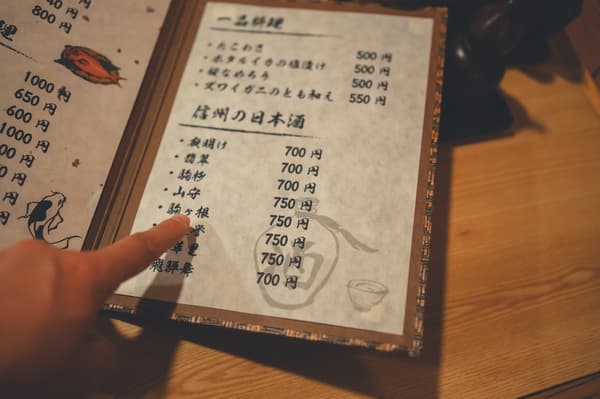 40 円
800 円
理
1000 円
650 円
600 円
1000 円
00 円
50 円
円
円
円
一品料理
・たこわさ 500 円
・ホタルイカの塩漬け 500 円
・鯵なめろう 500 円
・ズワイガニのとも和え 550 円
信州の日本酒
・夜明け 700 円
・翡翠 700 円
・駒杉 700 円
・山守 750 円
・駒ヶ根 750 円
誉 750 円
里 750 円
飛騨 700 円
酒